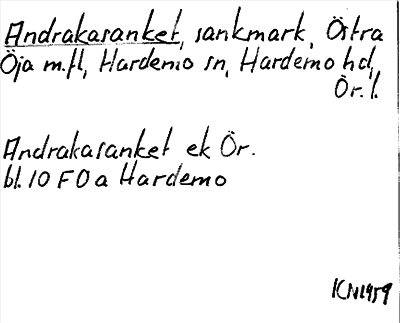 Andrakasanket, sankmark, Östra
Öja m.fl, Hardemo sn, Hardemo hd,
Ör. l.
Andrakasanket ek Ör.
bl. 10 F0a Hardemo
KN1959